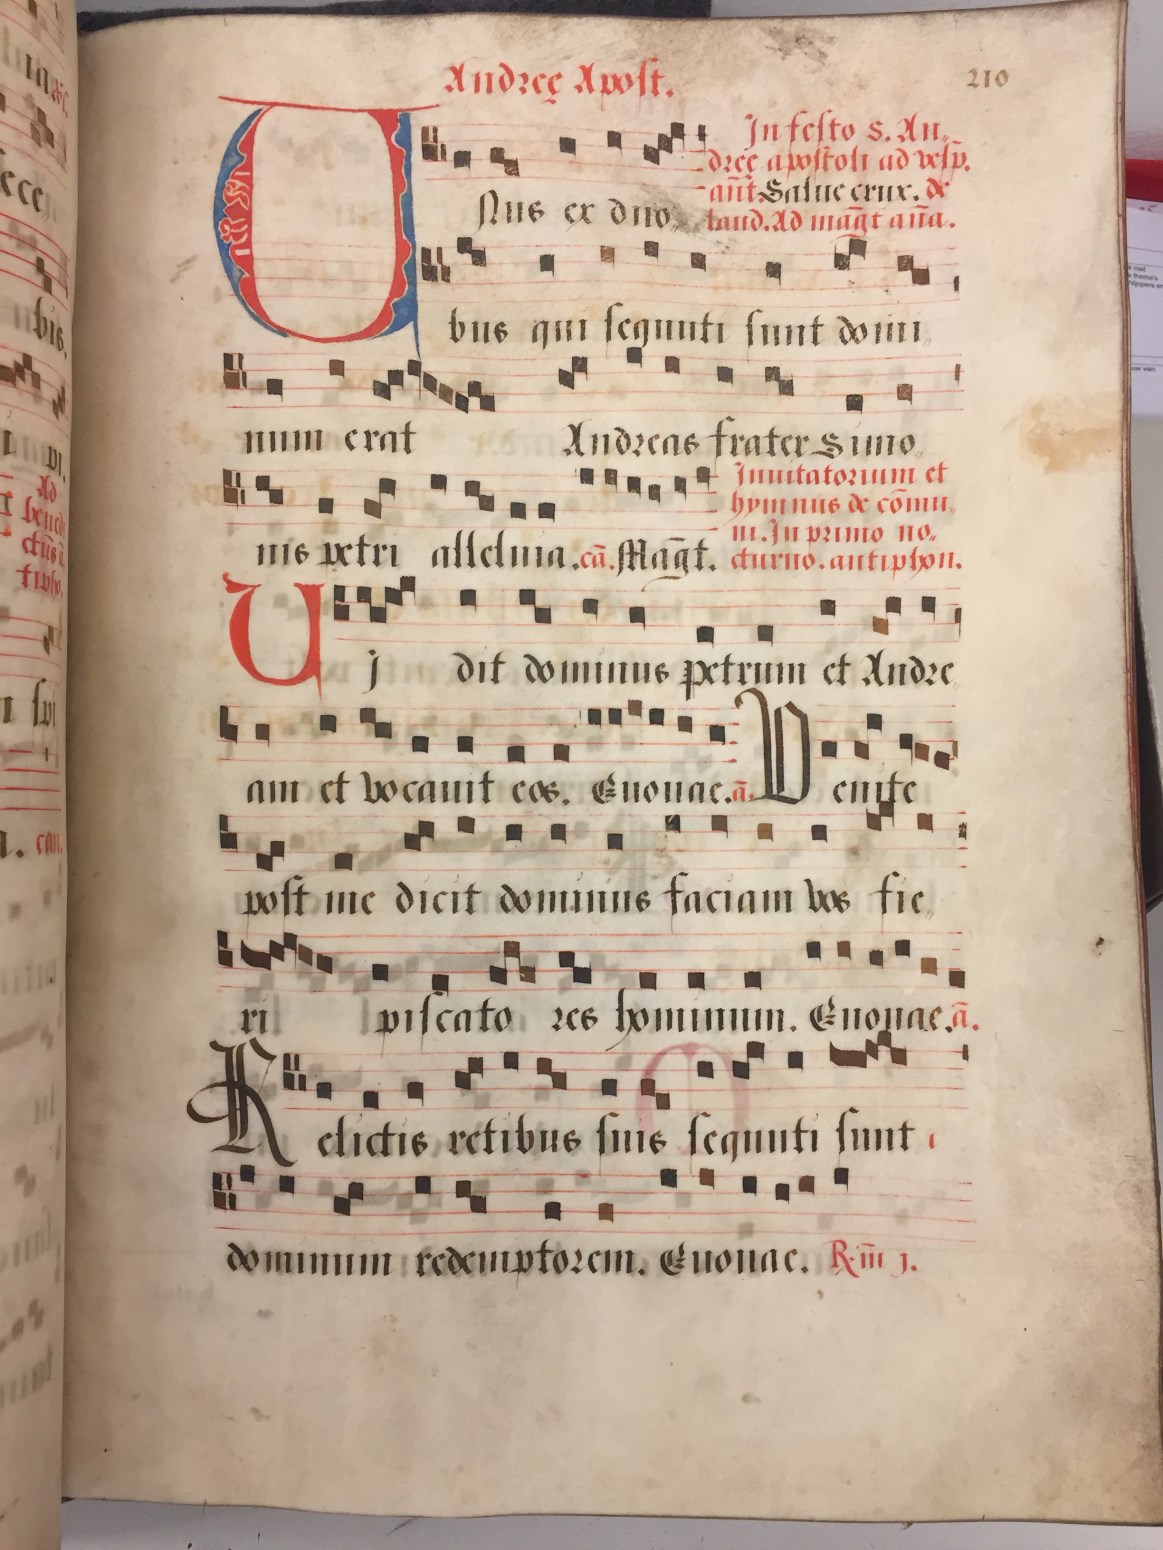 Andreę Apost.
210
In festo S. An-
dreę apostoli ad vesp̄.
an̄t Salue crux. de
laud. Ad mag̃t an̄a.
UNus ex duo-
bus qui sequuti sunt domi
num erat Andreas frater Simo
nis petri alleluia. cã. Mag̃t.
Inuitatorium et
hymnus de cõmu
ni. In primo no-
cturno. antiphon.
UJ dit dominus petrum et Andre
am et vocauit eos. Euouae. ã. Uenite
post me dicit dominus faciam vos fie
ri piscato res hominum. Euouae. ã.
Relictis retibus suis sequuti sunt
dominum redemptorem. Euouae. R. in̄ j.
bis.
Ad